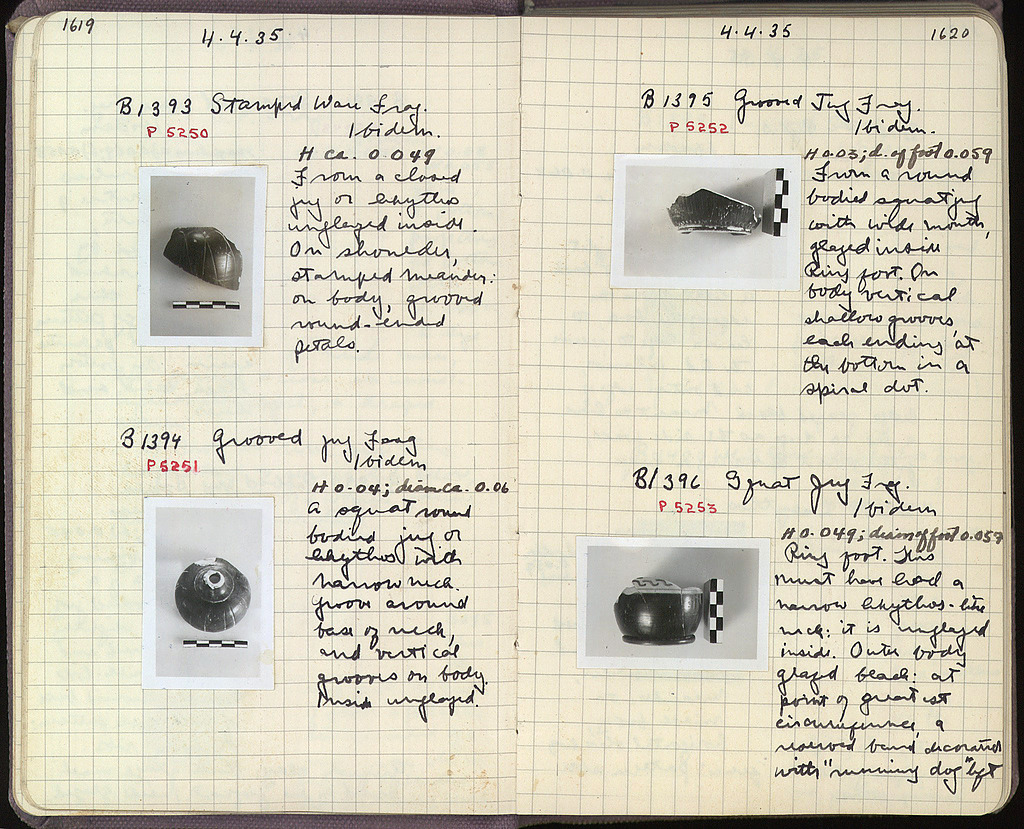 1619
4.4.35
B1393 Stamped Ware Frag.
P 5250
Ibidem.
H ca. 0.049
From a closed
jug or lekythos
unglazed inside.
On shoulder,
stamped meander:
on body, grooved
round-ended
petals.
B1394 Grooved jug Frag
P5251
Ibidem
H 0.04; diam ca. 0.06
A squat round
bodied jug or
lekythos with
narrow neck.
Groove around
base of neck,
and vertical
grooves on body.
Inside unglazed.
4.4.35
1620
B1395 Grooved Jug Frag.
P 5252
Ibidem.
H 0.03; d. of foot 0.059
From a round
bodied squat jug
with wide mouth,
glazed inside
Ring foot. On
body vertical
shallow grooves,
each ending at
the bottom in a
spiral dot.
B1396 Squat Jug Frg.
P 5253
Ibidem
H 0.049; diam of foot 0.057
Ring foot. This
must have had a
narrow lekythos-like
neck: it is unglazed
inside. Outer body
glazed black: at
point of greatest
circumference, a
reserved band decorated
with "running dog" left